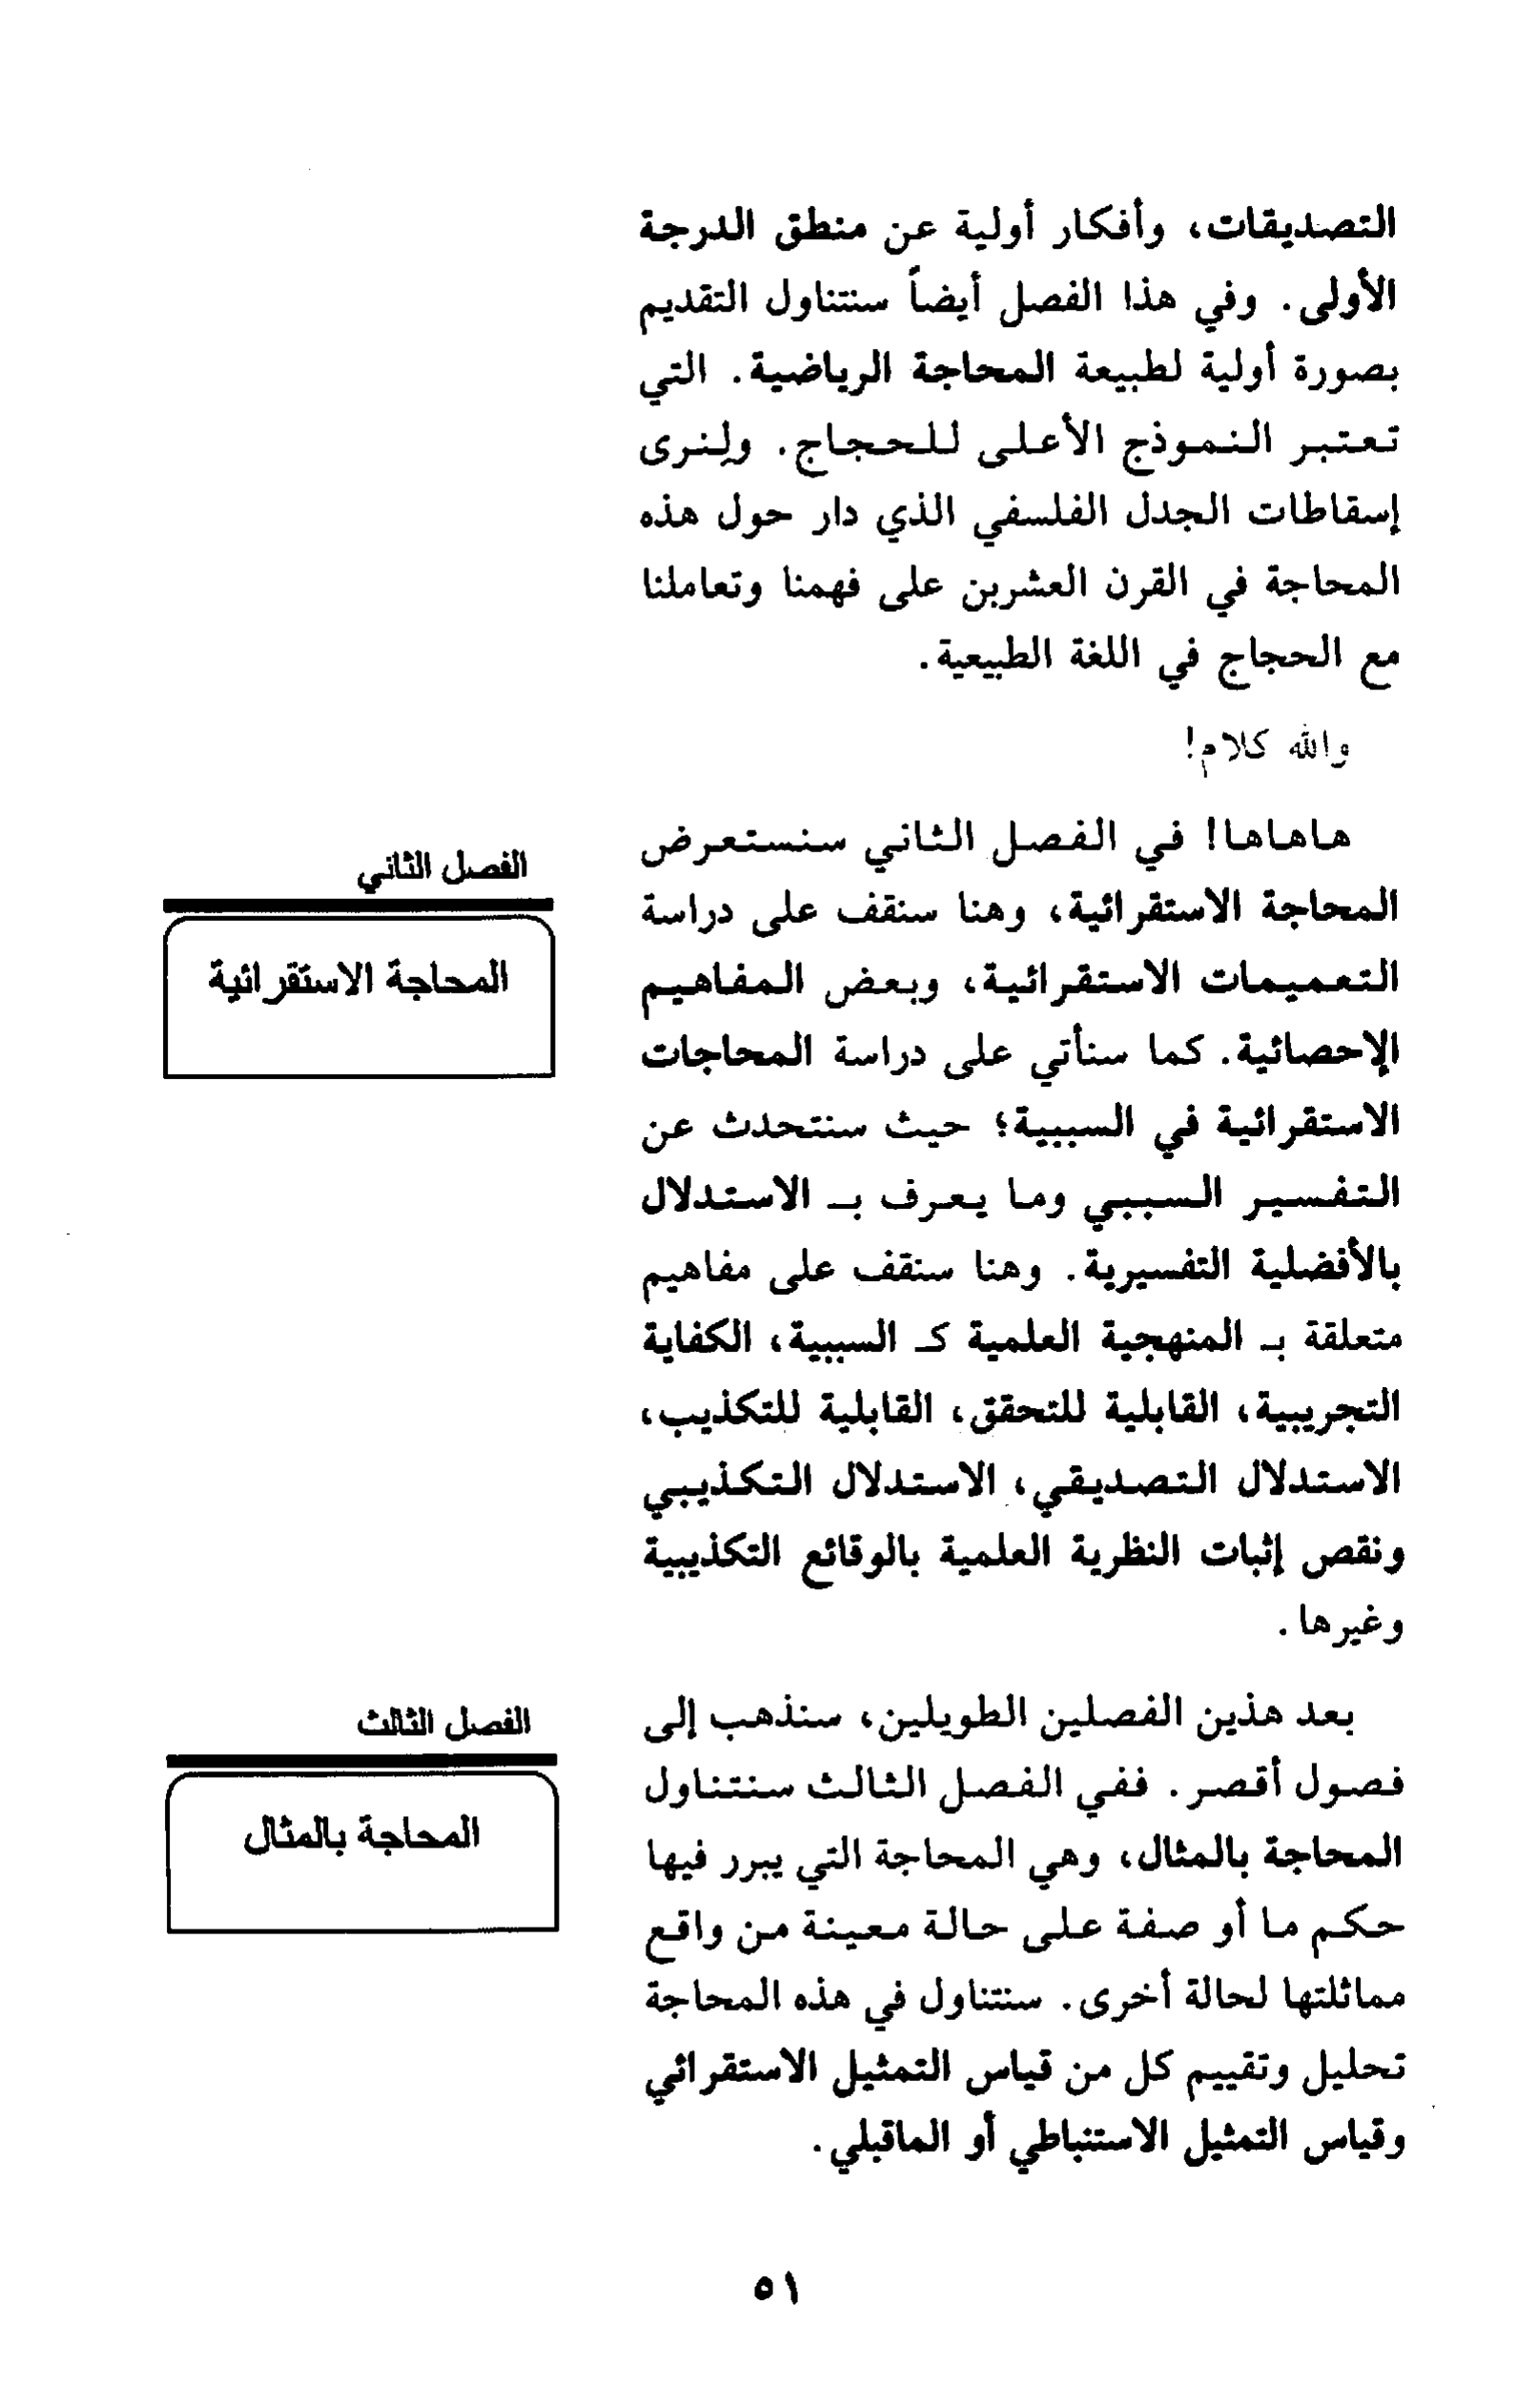 التصديقات، وأفكار أولية عن منطق الدرجة
الأولى. وفي هذا الفصل أيضاً سنتناول التقديم
بصورة أولية لطبيعة المحاجة الرياضية. التي
تعتبر النموذج الأعلى للحجاج. ولِنرى
إسقاطات الجدل الفلسفي الذي دار حول هذه
المحاجة في القرن العشرين على فهمنا وتعاملنا
مع الحجاج في اللغة الطبيعية.
والله كلام!
هاهاها! في الفصل الثاني سنستعرض
المحاجة الاستقرائية، وهنا سنقف على دراسة
التعميمات الاستقرائية، وبعض المفاهيم
الإحصائية. كما سنأتي على دراسة المحاجات
الاستقرائية في السببية؛ حيث سنتحدث عن
التفسير السببي وما يعرف بـ الاستدلال
بالأفضلية التفسيرية. وهنا سنقف على مفاهيم
متعلقة بـ المنهجية العلمية كـ السببية، الكفاية
التجريبية، القابلية للتحقق، القابلية للتكذيب،
الاستدلال التصديقي، الاستدلال التكذيبي
ونقص إثبات النظرية العلمية بالوقائع التكذيبية
وغيرها.
الفصل الثاني
المحاجة الاستقرائية
بعد هذين الفصلين الطويلين، سنذهب إلى
فصول أقصر. ففي الفصل الثالث سنتناول
المحاجة بالمثال، وهي المحاجة التي يبرر فيها
حكم ما أو صفة على حالة معينة من واقع
مماثلتها لحالة أخرى. سنتناول في هذه المحاجة
تحليل وتقييم كل من قياس التمثيل الاستقرائي
وقياس التمثيل الاستنباطي أو الماقبلي.
الفصل الثالث
المحاجة بالمثال
٥١